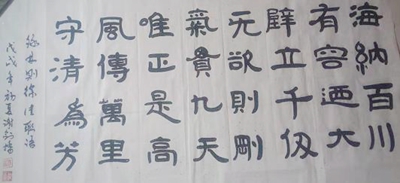 海納百川
有容迺大
壁立千仭
无欲則剛
氣貫九天
唯正是高
風傳萬里
守清為芳
戊戌年初夏